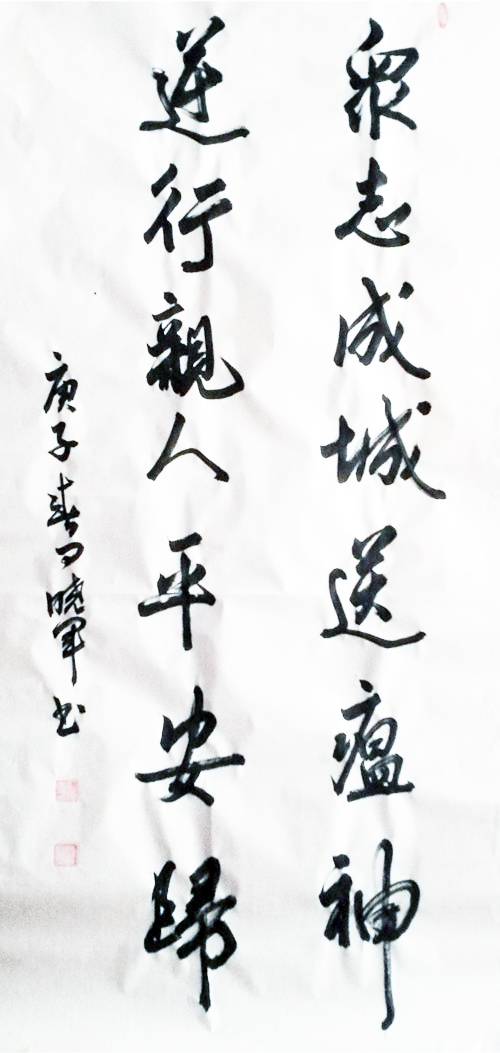 眾志成城送瘟神
逆行親人平安歸
庚子春月曉軍书